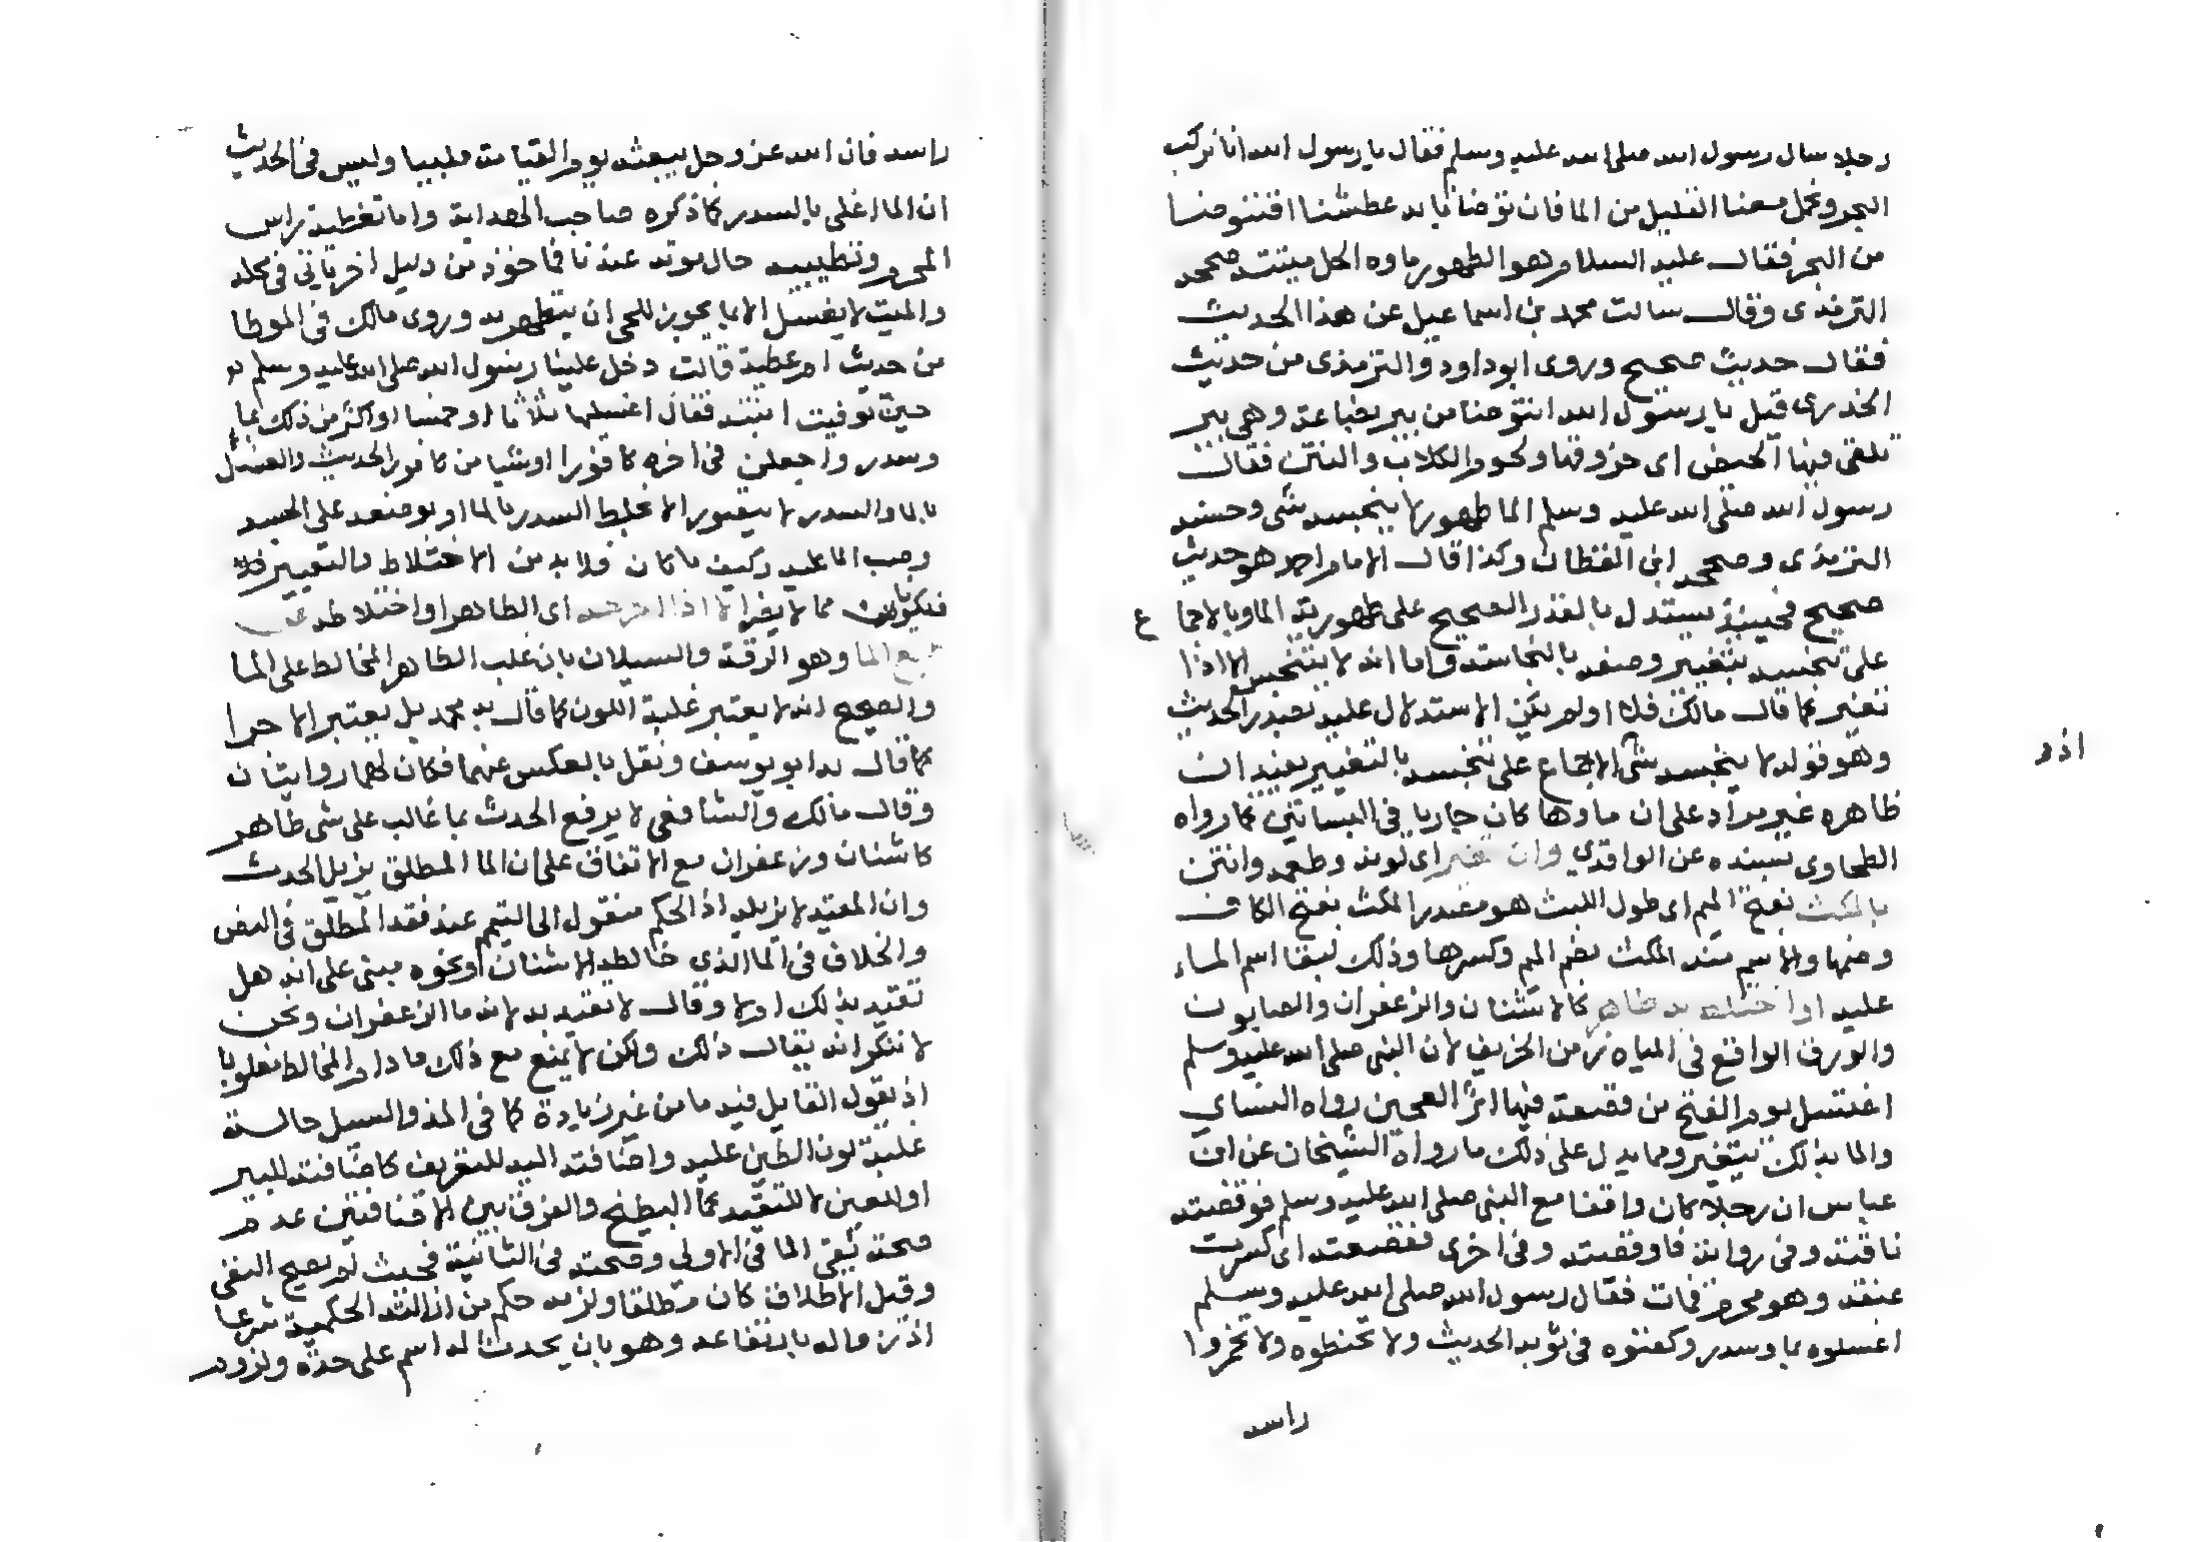 رجلا سال رسول الله صلى الله عليه وسلم فقال يا رسول الله انا نركب
البحر ونحمل معنا القليل من الما فان توضانا به عطشنا افنتوضا
من البحر فقال عليه السلام هو الطهور ماوه الحل ميتته صححه
الترمذى وقال سالت محمد بن اسماعيل عن هذا الحديث
فقال حديث صحيح وروى ابو داود والترمذى من حديث
الخدرى قيل يا رسول الله انتوضا من بير بضاعة وهى بير
تلقى فيها الحيض اى خروقها ولحوم الكلاب والنتن فقال
رسول الله صلى الله عليه وسلم الما طهور لا ينجسه شى وحسنه
الترمذى وصححه ابن القطان وكذا قال الامام احمد هو حديث
صحيح فحينئذ يستدل بالقدر الصحيح على طهورية الما وبالاجما ع
على تنجسه بتغيير وصفه بالنجاسة واما انه لا يتنجس الا اذا
تغير كما قال مالك فلا اولم يكن الاستدلال عليه بصدر الحديث
وهو قوله لا ينجسه شى الاجماع على تنجسه بالتغيير يفيد ان
اذ و
ظاهره غير مراد على ان ماوها كان جاريا فى البساتين كما رواه
الطحاوى بسنده عن الواقدي وان تغير اى لونه وطعمه وانتن
بالمكث بفتح الميم اى طول اللبث هو مصدر المكث بفتح الكاف
وضمها والاسم منه المكث بضم الميم وكسرها وذلك لبقا اسم الماء
عليه او اختلط به طاهر كالاشنان والزعفران والصابون
والورق الواقع فى المياه زمن الخريف لان النبى صلى الله عليه وسلم
اغتسل يوم الفتح من قصعة فيها اثر العجين رواه النساي
والما بذلك يتغير ومما يدل على ذلك ما رواه الشيخان عن ابن
عباس ان رجلا كان واقفا مع النبى صلى الله عليه وسلم فوقصته
ناقته وفى رواية فاوقصته وفى اخرى فقصعته اى كسرت
عنقه وهو محرم فمات فقال رسول الله صلى الله عليه وسلم
اغسلوه بما وسدر وكفنوه فى ثوبه الحديث ولا تحنطوه ولا تخمروا
راسه
راسه فان الله عز وجل يبعثه يوم القيامة ملبيا وليس فى الحديث
ان الما اغلى بالسدر كما ذكره صاحب الهداية واما تغطية راس
المحرم وتطييبه حال موته عندنا فماخوذ من دليل اخر ياتى فى محله
والميت لا يغسل الا بما يجوز للحى ان يتطهر به وروى مالك فى الموطا
من حديث ام عطية قالت دخل علينا رسول الله صلى الله عليه وسلم
حين توفيت ابنته فقال اغسلنها ثلاثا او خمسا او اكثر من ذلك بما
وسدر واجعلن فى اخره كافورا او شيا من كافور الحديث والغسل
بالما والسدر لا يتصور الا بخلط السدر بالما او بوضعه على الجسد
وصب الما عليه وكيف ما كان فلا بد من الاختلاط والتغيير
اى الطاهر او اختلاطه
طبع الما وهو الرقة والسيلان بان غلب الطاهر المخالط على الما
والصحيح انه لا يعتبر غلبة اللون كما قال به محمد بل يعتبر الاجرا
كما قال به ابو يوسف ونقل بالعكس عنهما فكان لهما روايتان
وقال مالك والشافعى لا يرفع الحدث بما غالب على شى طاهر
كاشنان وزعفران مع الاتفاق على ان الما المطلق يزيل الحدث
وان المقيد لا يزيله اذ الحكم منقول الى التيمم عند فقد المطلق فى النص
والخلاف فى الما الذى خالطه الاشنان او نحوه مبنى على انه هل
تقيد بذلك اولا وقال لا تقيد به لانه ما الزعفران ونحن
لا ننكر انه يقال ذلك ولكن لا يمنع مع ذلك ما دام المخالط مغلوبا
اذ يقول القايل فيه ما من غير زيادة كما فى المد والسيل حالة
غلبة لون الطين عليه واضافته اليه للتعريف كاضافته للبير
او العين لا للتقييد كما البطيخ والفرق بين الاضافتين عدم
صحة نفى الما فى الاولى وصحته فى الثانية فحيث لم يصح النفى
وقبل الاطلاق كان مطلقا ولزمه حكم من ازالته الحكمية شرعا
اذ زواله بارتفاعه وهو بان يحدث له اسم على حدة ولزوم